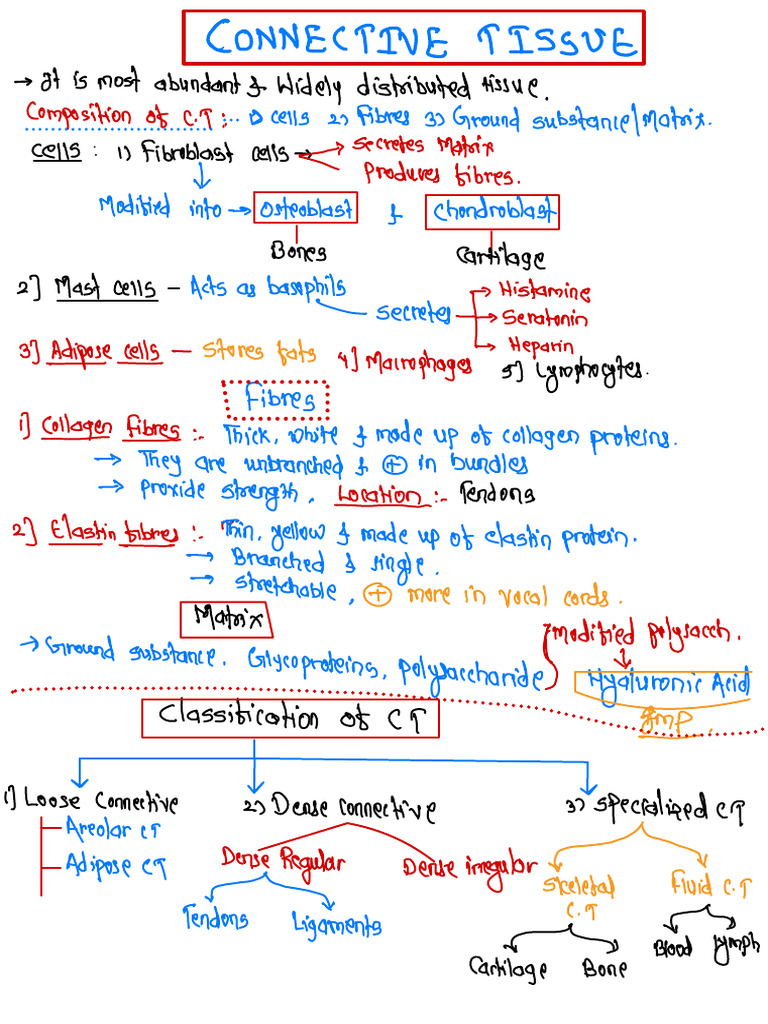 CONNECTIVE TISSUE
→ It is most abundant & Widely distributed tissue.
Composition of C.T :... 1) cells 2) Fibres 3) Ground substance/Matrix.
Cells : 1) Fibroblast cells → Secretes Matrix
Produces fibres.
Modified into → Osteoblast & Chondroblast
Bones Cartilage
2] Mast cells – Acts as basophils
secretes → Histamine
→ Seratonin
→ Heparin
3] Adipose cells – Stores fats 4] Macrophages 5] Lymphocytes.
Fibres
1] Collagen fibres :- Thick, white & made up of collagen proteins.
→ They are unbranched & ⊕ in bundles
→ Provide strength, Location :- Tendons
2] Elastin fibres :- Thin, yellow & made up of elastin protein.
→ Branched & single.
→ stretchable, ⊕ more in vocal cords.
Matrix
→ Ground substance. Glycoproteins, polysaccharide
modified polysacch.
Hyaluronic Acid
Imp.
Classification of CT
1) Loose Connective 2) Dense connective 3) Specialized CT
Areolar CT
Adipose CT
Dense Regular Dense irregular
Skeletal C.T Fluid C.T
Tendons Ligaments
Cartilage Bone Blood Lymph